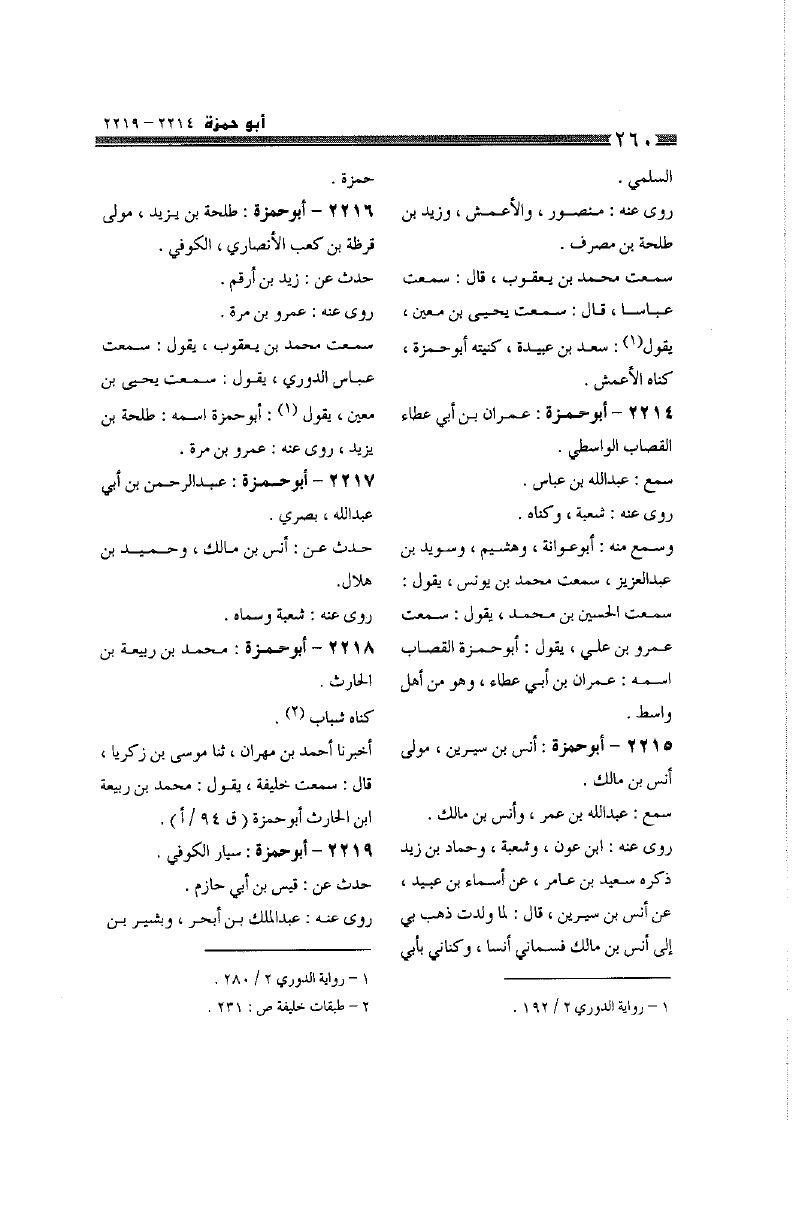 أبو حمزة ٢٢١٤ – ٢٢١٩
٢٦٠
السلمي .
روى عنه : منصور ، والأعمش ، وزيد بن
طلحة بن مصرف .
سمعت محمد بن يعقوب ، قال : سمعت
عباسا ، قال : سمعت يحيى بن معين ،
يقول(١) : سعد بن عبيدة ، كنيته أبوحمزة ،
كناه الأعمش .
٢٢١٤ – أبوحمزة : عمران بن أبي عطاء
القصاب الواسطي .
سمع : عبدالله بن عباس .
روى عنه : شعبة ، وكناه .
وسمع منه : أبوعوانة ، وهشيم ، وسويد بن
عبدالعزيز ، سمعت محمد بن يونس ، يقول :
سمعت الحسين بن محمد ، يقول : سمعت
عمرو بن علي ، يقول : أبوحمزة القصاب
اسمه : عمران بن أبي عطاء ، وهو من أهل
واسط .
٢٢١٥ – أبوحمزة : أنس بن سيرين ، مولى
أنس بن مالك .
سمع : عبدالله بن عمر ، وأنس بن مالك .
روى عنه : ابن عون ، وشعبة ، وحماد بن زيد
ذكره سعيد بن عامر ، عن أسماء بن عبيد ،
عن أنس بن سيرين ، قال : لما ولدت ذهب بي
إلى أنس بن مالك فسماني أنسا ، وكناني بأبي
١ – رواية الدوري ٢ / ١٩٢ .
حمزة .
٢٢١٦ – أبوحمزة : طلحة بن يزيد ، مولى
قرظة بن كعب الأنصاري ، الكوفي .
حدث عن : زيد بن أرقم .
روى عنه : عمرو بن مرة .
سمعت محمد بن يعقوب ، يقول : سمعت
عباس الدوري ، يقول : سمعت يحيى بن
معين ، يقول (١) : أبوحمزة اسمه : طلحة بن
يزيد ، روى عنه : عمرو بن مرة .
٢٢١٧ – أبوحمزة : عبدالرحمن بن أبي
عبدالله ، بصري .
حدث عن : أنس بن مالك ، وحميد بن
هلال.
روى عنه : شعبة وسماه .
٢٢١٨ – أبوحمزة : محمد بن ربيعة بن
الحارث .
كناه شباب (٢) .
أخبرنا أحمد بن مهران ، ثنا موسى بن زكريا ،
قال : سمعت خليفة ، يقول : محمد بن ربيعة
ابن الحارث أبوحمزة ( ق ٩٤ / أ ) .
٢٢١٩ – أبوحمزة : سيار الكوفي .
حدث عن : قيس بن أبي حازم .
روى عنه : عبدالملك بن أبحر ، وبشير بن
١ – رواية الدوري ٢ / ٢٨٠ .
٢ – طبقات خليفة ص : ٢٣١ .